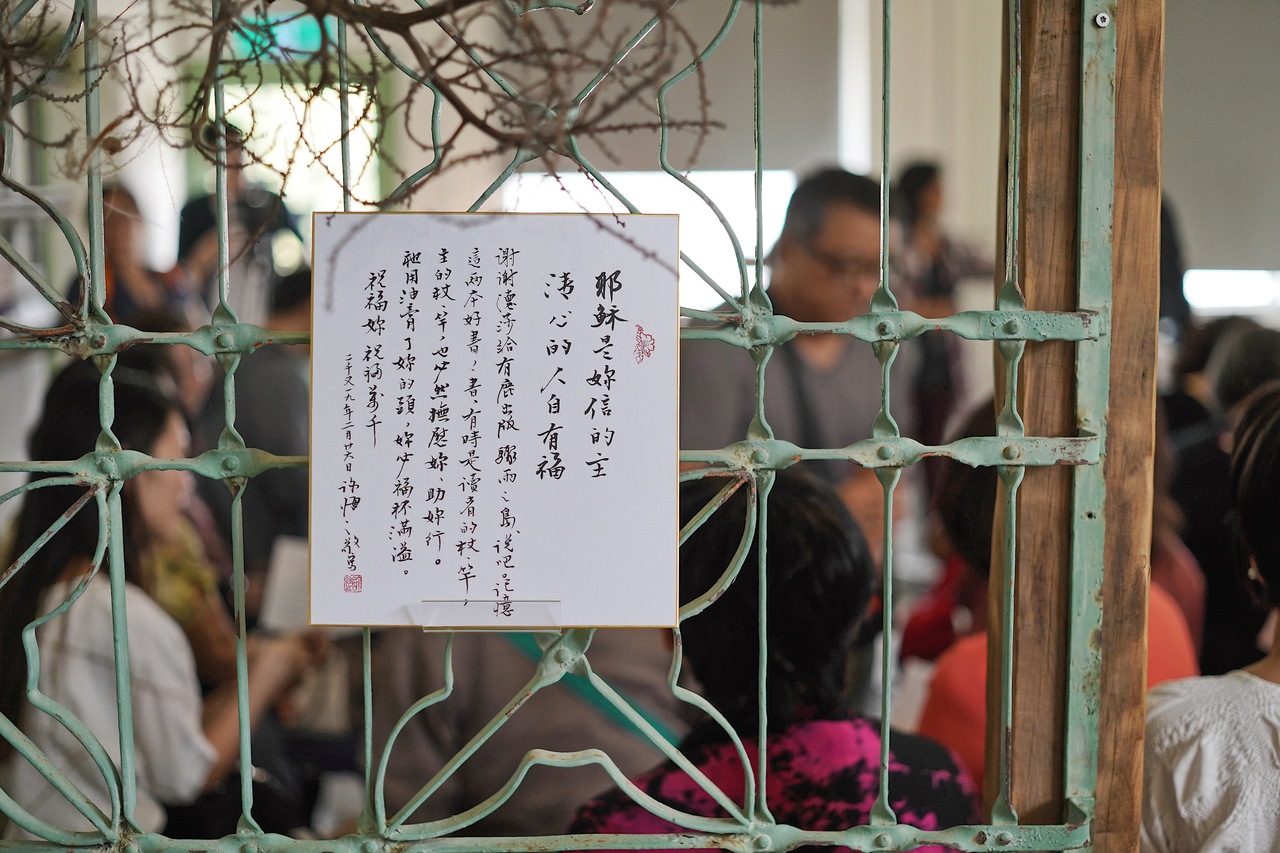 耶穌是妳信的主
清心的人自有福
謝謝德莎給有鹿出版 驟雨之島、說吧記憶
這兩本好書，書，有時是讀者的杖、竿，
主的杖、竿，也必然撫慰妳、助妳行。
祂用油膏了妳的頭，妳必福杯滿溢。
祝福妳 祝福萬千
二千又九年二月廿六日 許悔之 敬寫